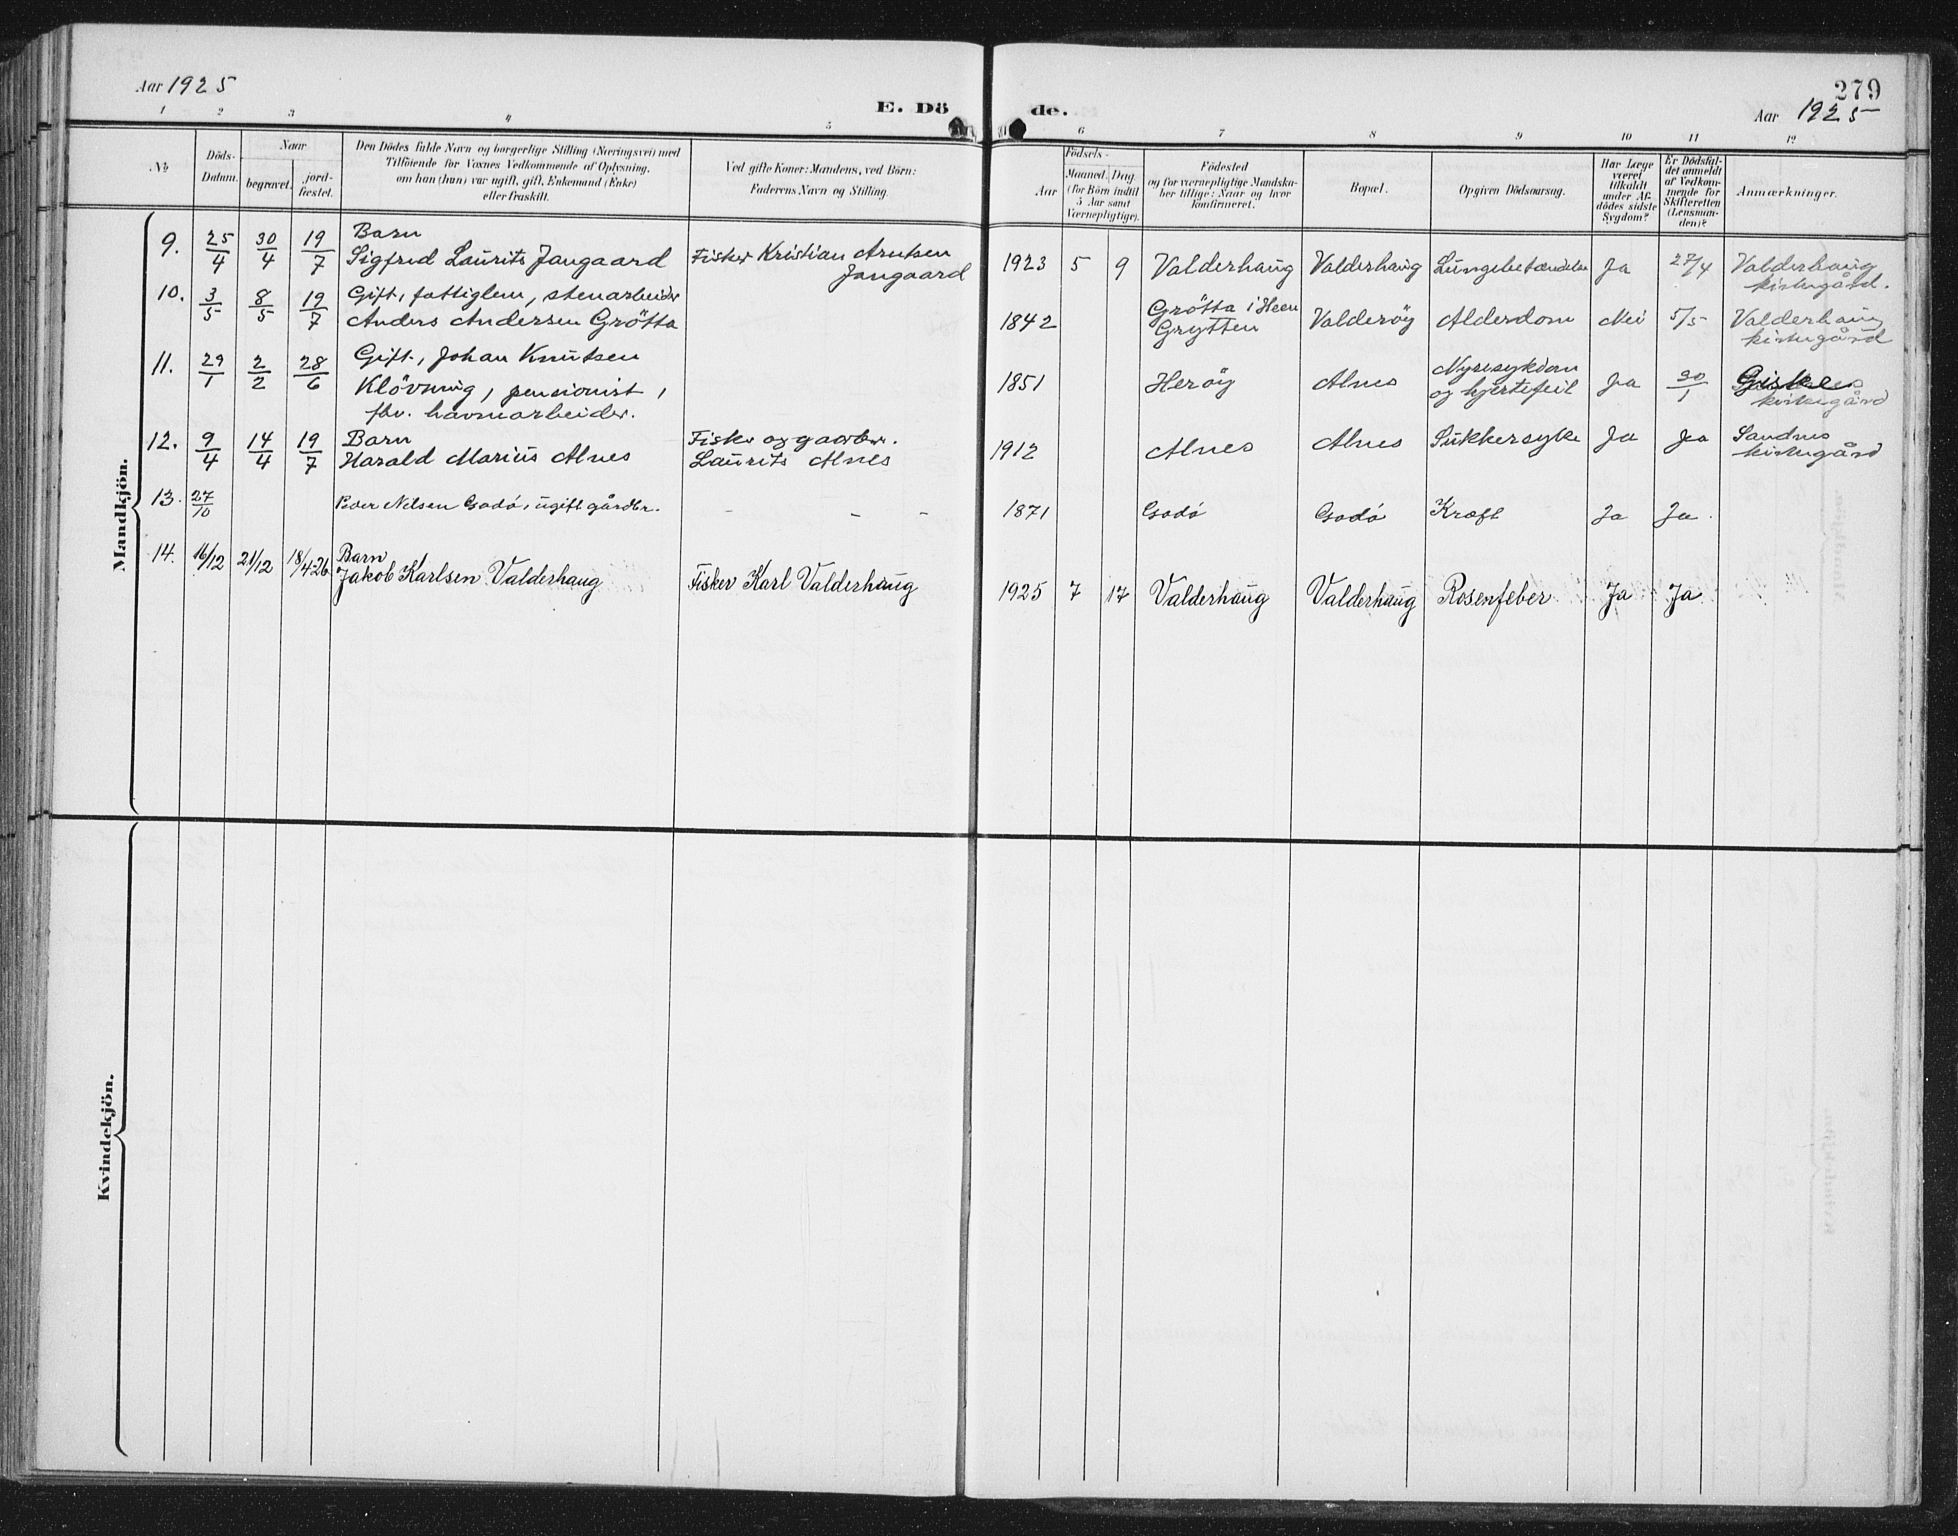 Aar 1925
E. Dö de.
279
Aar 1925
1 2 3 4 5 6 7 8 9 10 11 12
No
Döds-Datum.
Naar
begravet.
jord-fæstet.
Den Dödes fulde Navn og borgerlige Stilling (Næringsvei) med
Tilföiende for Voxnes Vedkommende af Oplysning,
om han (hun) var ugift, gift, Enkemand (Enke)
eller fraskilt.
Ved gifte Koner: Mandens, ved Börn:
Faderens Navn og Stilling.
Födsels-
Aar
Maaned. Dag
(for Börn indtil
5 Aar samt
Værnepligtige).
Födested
og for værnepligtige Mandskaber tillige: Naar og hvor
konfirmeret.
Bopæl.
Opgiven Dödsaarsag.
Har Læge
været
tilkaldt
under Afdödes sidste
Sygdom?
Er Dödsfaldet anmeldt
af Vedkommende for
Skifteretten
(Lensmanden)?
Anmærkninger.
Mandkjön.
9. 25/4 30/4 19/7 Barn
Sigfred Laurits Jangaard Fisker Kristian Arntsen
Jangaard 1923 5 9 Valderhaug Valderhaug Lungebetændelse Ja 27/4 Valderhaug
kirkegård.
10. 3/5 8/5 19/7 Gift, fattiglem, stenarbeider
Anders Andersen Grötta 1842 Grötta i Heen
Grytten Valderöy Alderdom Nei 5/5 Valderhaug
kirkegård
11. 29/1 2/2 28/6 Gift, Johan Knutsen
Klövning, pensionist,
fhv. havnearbeider. 1851 Heröy Alnes Nyresykdom
og hjertefeil Ja 30/1 Giske
kirkegård
12. 9/4 14/4 19/7 Barn
Harald Marius Alnes Fisker og gaardbr.
Laurits Alnes 1912 Alnes Alnes Sukkersyke Ja Ja Sandnes
kirkegård
13. 27/10 Peder Nilsen Godö, ugift gårdbr. - - - 1871 Godö Godö Kræft Ja Ja.
14. 16/12 21/12 18/4-26 Barn
Jakob Karlsen Valderhaug Fisker Karl Valderhaug 1925 7 17 Valderhaug Valderhaug Rosenfeber Ja Ja
Kvindekjön.